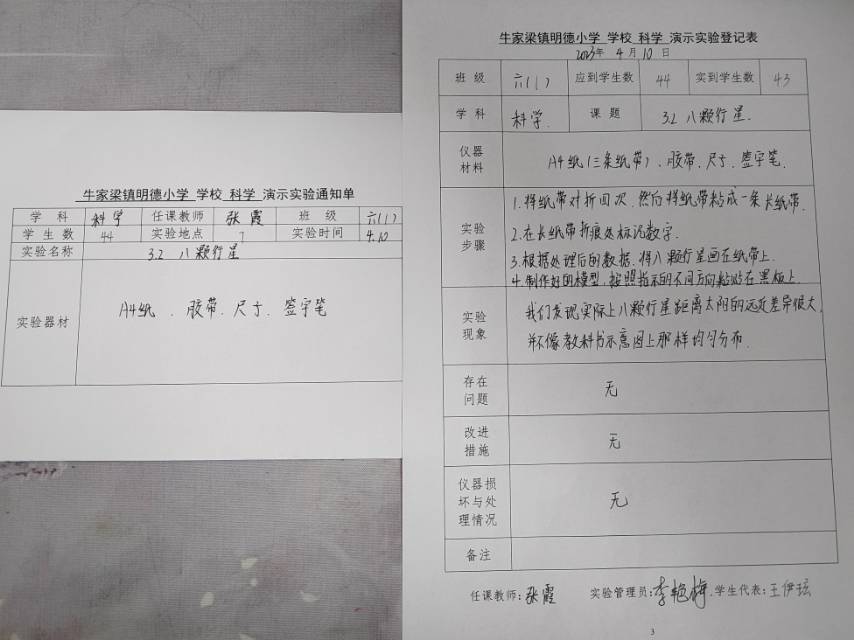 牛家梁镇明德小学 学校 科学 演示实验通知单
学 科 科学 任课教师 张霞 班 级 六(1)
学 生 数 44 实验地点 7 实验时间 4.10
实验名称 3.2 八颗行星
实验器材 A4纸 、胶带、尺寸、签字笔
牛家梁镇明德小学 学校 科学 演示实验登记表
2023年 4 月 10 日
班 级 六(1) 应到学生数 44 实到学生数 43
学 科 科学. 课 题 3.2 八颗行星.
仪器
材料
A4纸(三条纸带)、胶带、尺寸、签字笔.
实验
步骤
1.将纸带对折四次,然后将纸带粘成一条长纸带.
2.在长纸带折痕处标识数字.
3.根据处理后的数据,将八颗行星画在纸带上.
4.制作好的模型,按照指示的不同方向粘贴在黑板上.
实验
现象
我们发现实际上八颗行星距离太阳的远近差异很大,
并不像教科书示意图上那样均匀分布.
存在
问题
无
改进
措施
无
仪器损
坏与处
理情况
无
备注
任课教师:张霞 实验管理员:李艳梅 学生代表:王伊玹
3